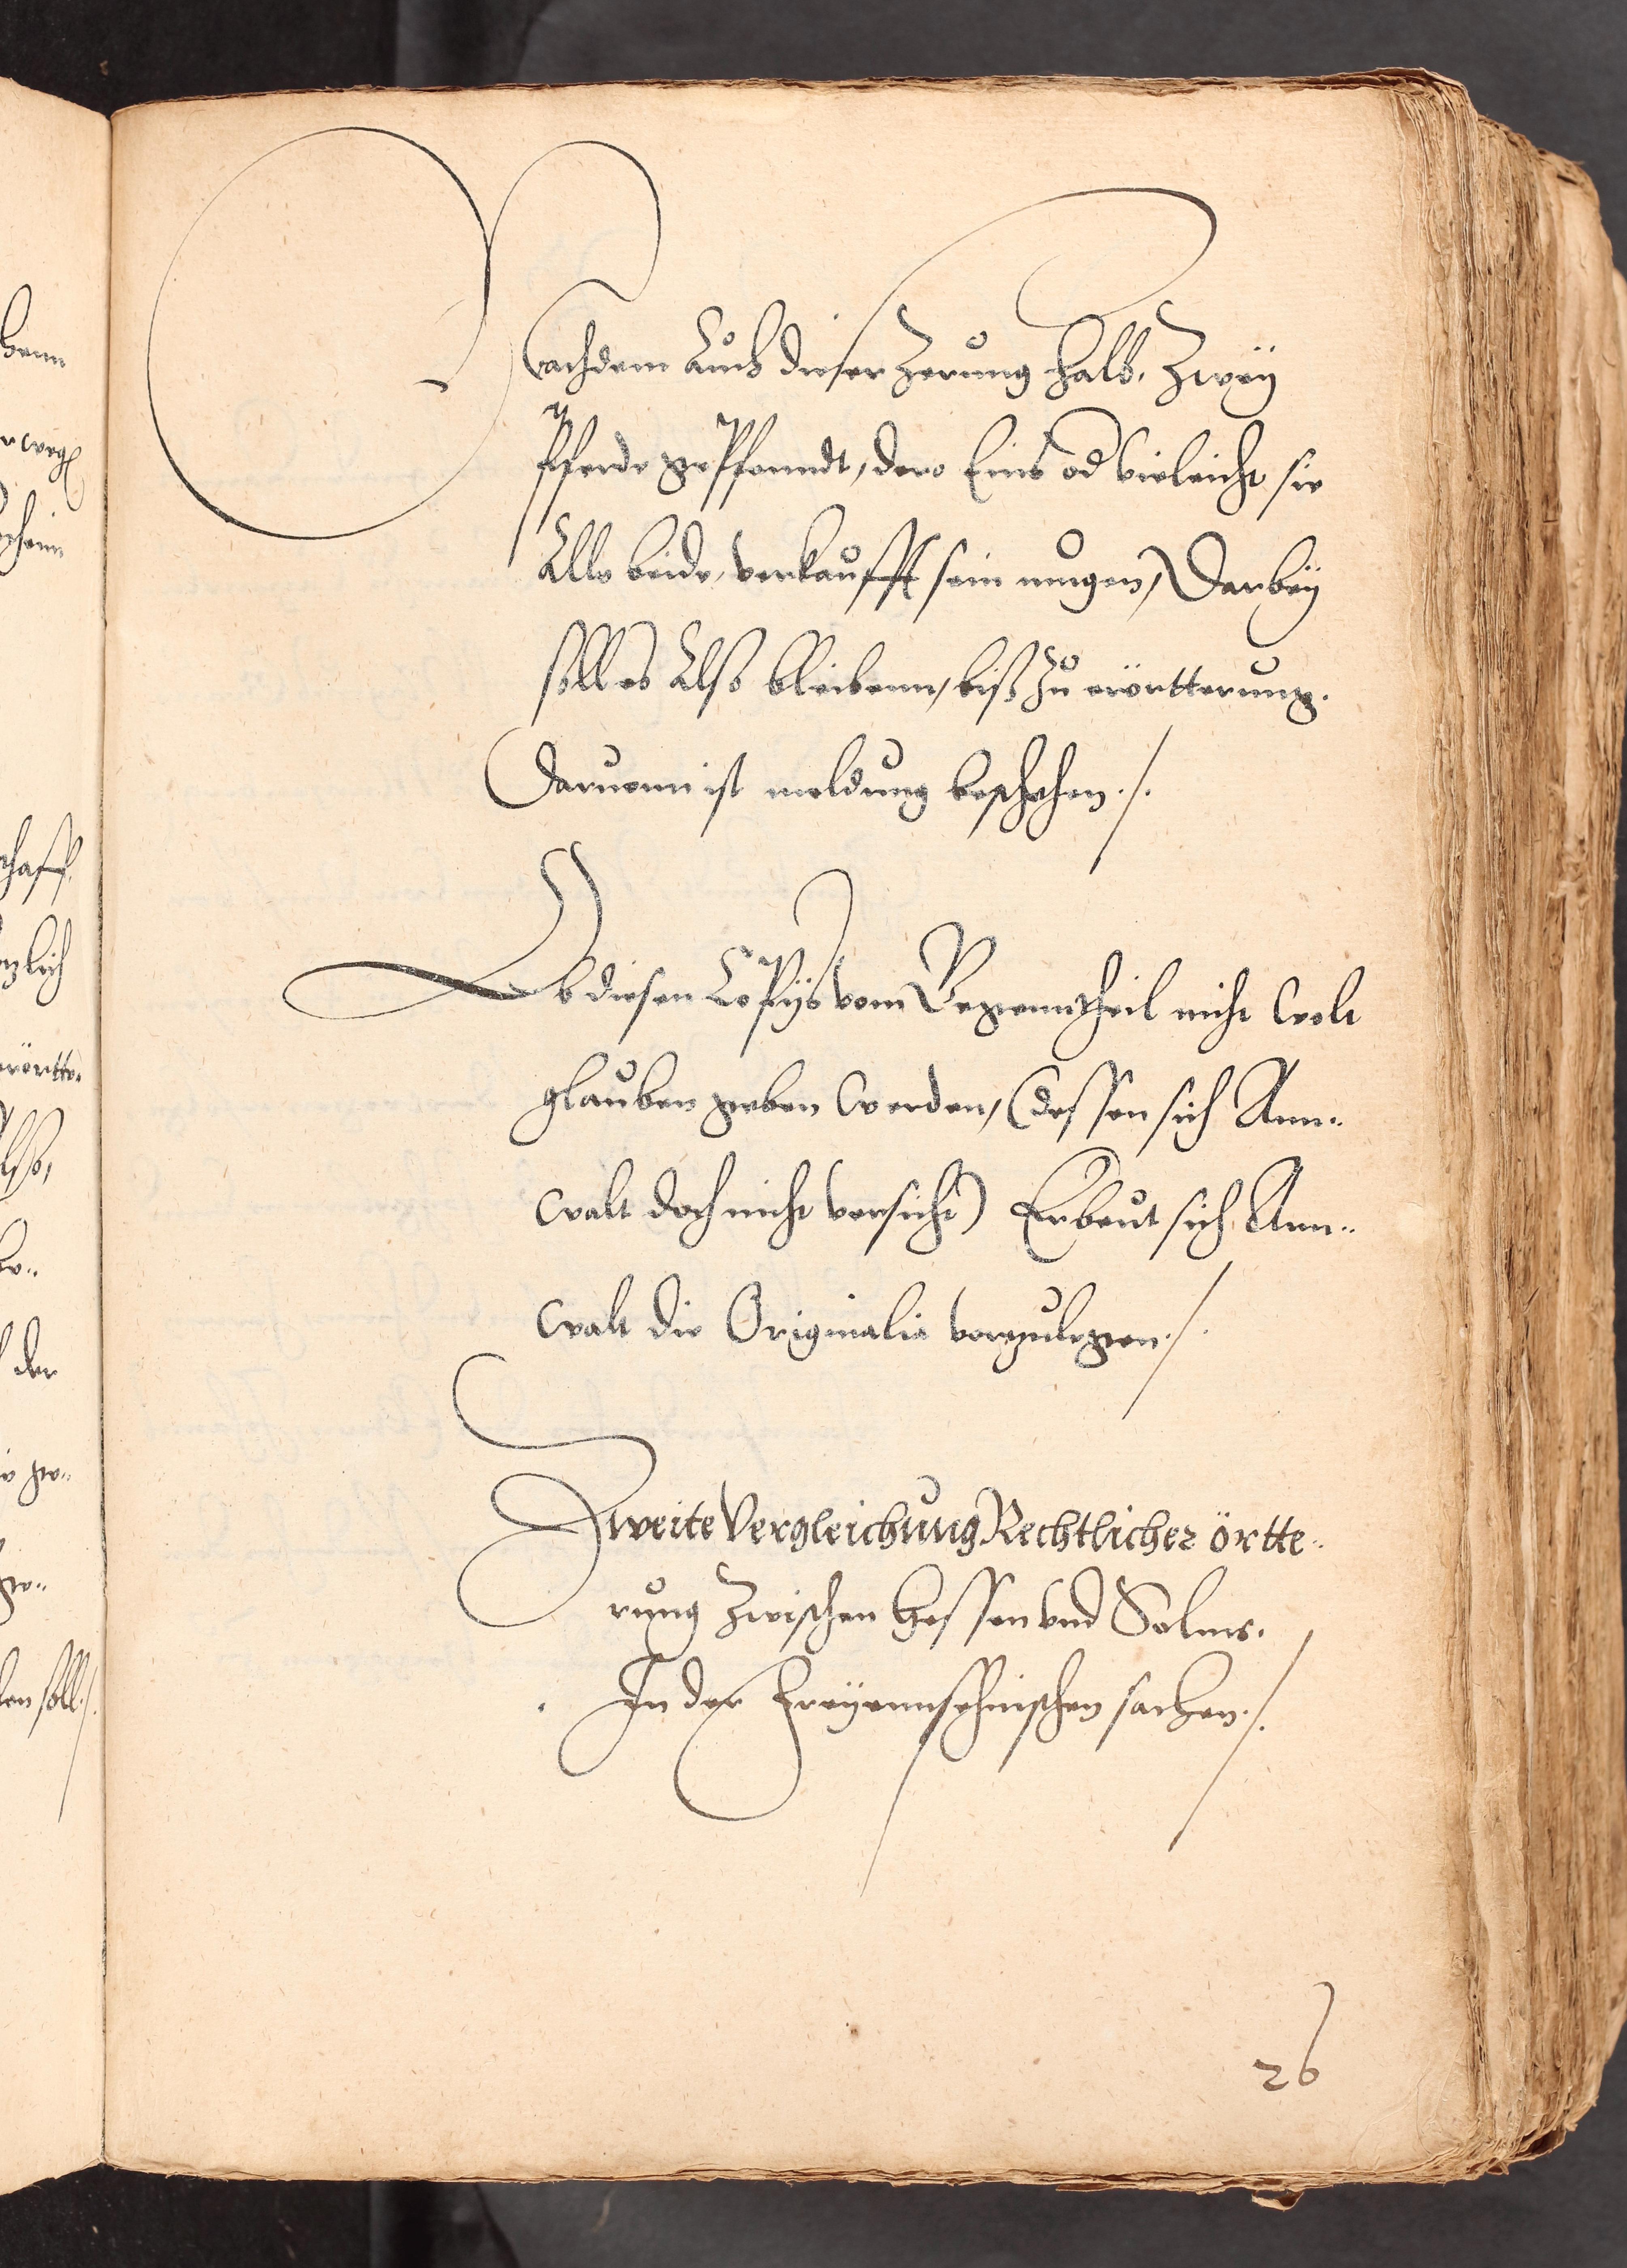 Nachdem Auch dieser Zerung halb, Zweÿ
Pferde gePfanndt, dero Eins od Vieleicht sie
Alle beide, verkaufft sein mugen, Darbeÿ
soll es Also bleibenn, biß Zu erörtterung.
Daruonn ist meldung beschehen ./.
Ob diesen Copÿs vom Gegenntheil nicht wolt
glauben geben werden, (dessen sich Ann¬
walt doch nicht versicht) Erbeut sich Ann¬
walt die Originalia vorzulegen ./.
Zweite Vergleichung Rechtlicher örtte¬
rung Zwischen Hessen vnd Solms.
In der Freÿennsehnischen sachen ./.
26